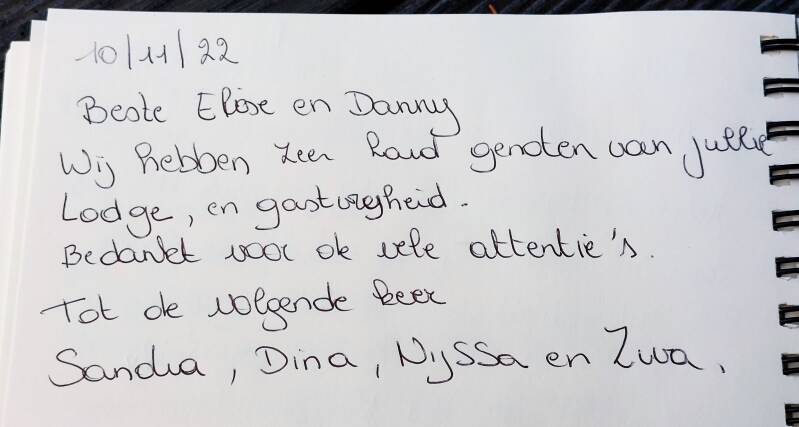 10/11/22
Beste Elise en Danny
Wij hebben zeer hard genoten van jullie
Lodge, en gastvrijheid.
Bedankt voor de vele attentie's.
Tot de volgende keer
Sandra, Dina, Nyssa en